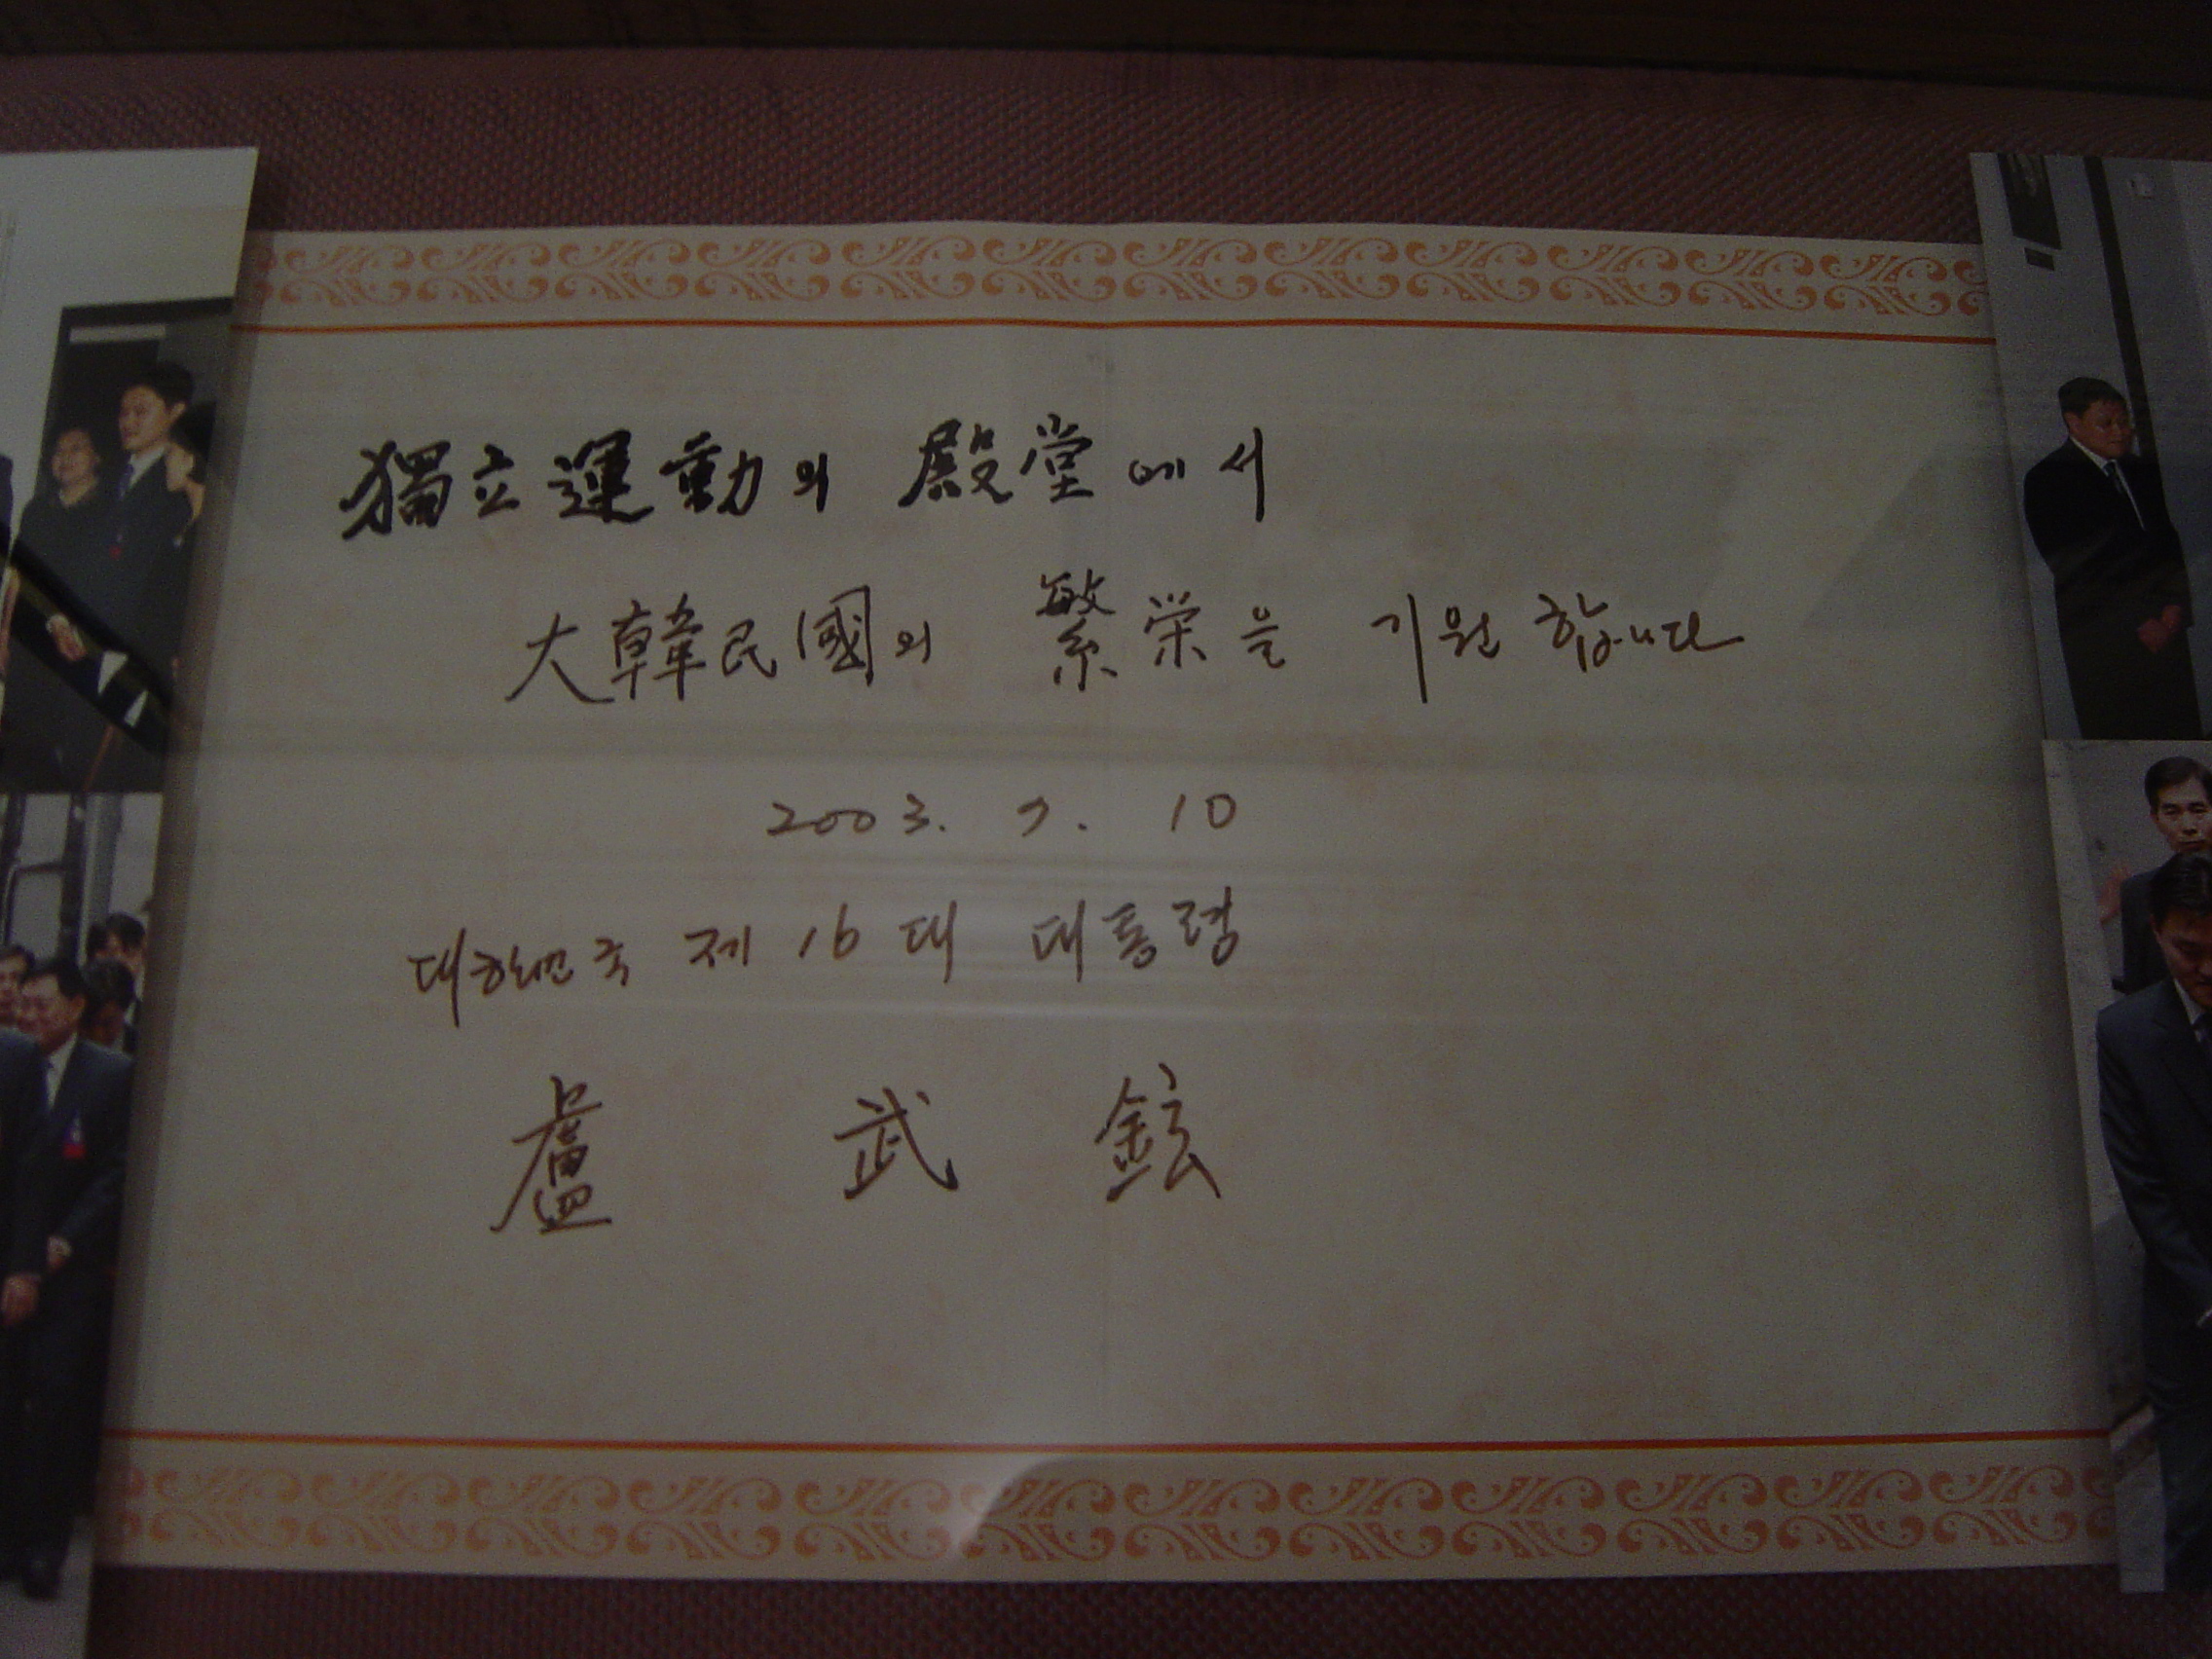 獨立運動의 殿堂에서
大韓民國의 繁栄을 기원합니다
2003. 7. 10
대한민국 제16대 대통령
盧 武 鉉